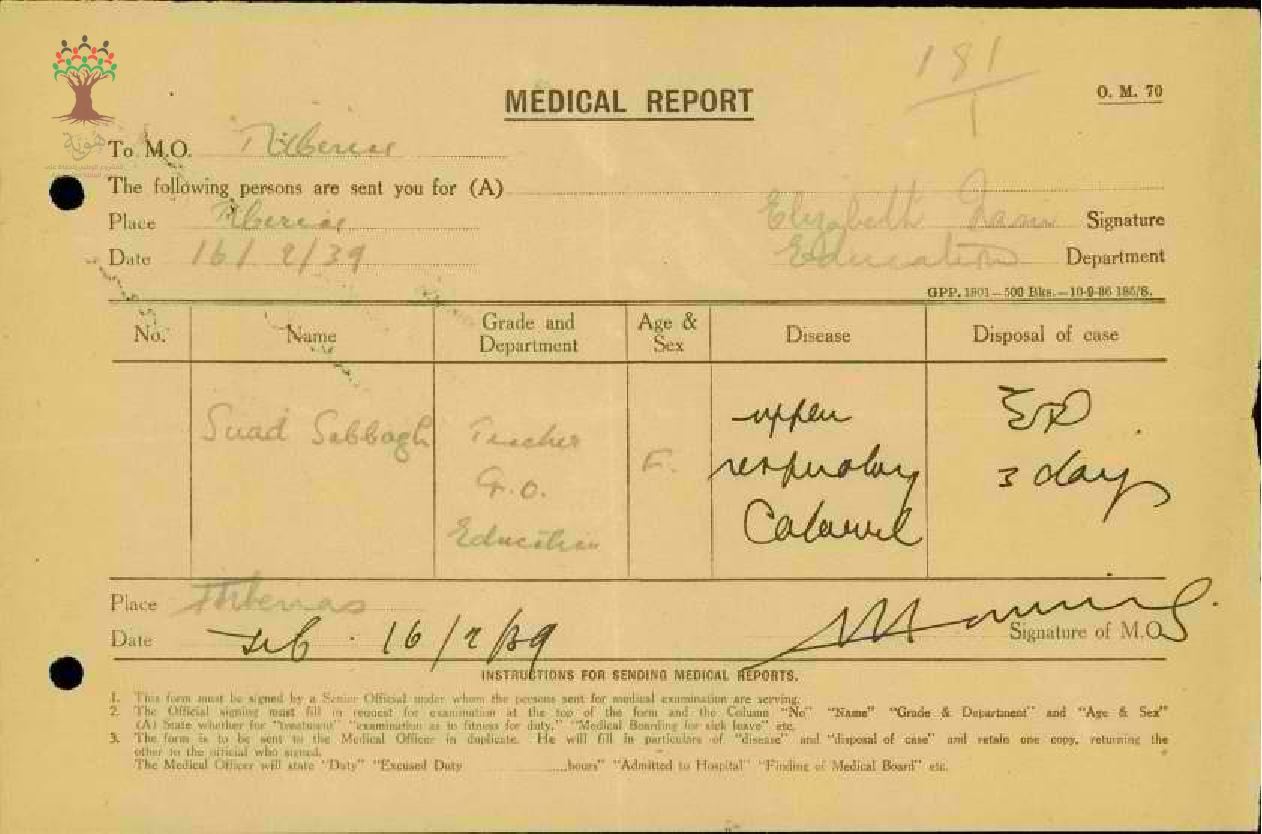 181
1
MEDICAL REPORT
O. M. 70
هوية
To M.O. Tiberias
The following persons are sent you for (A)
Place Tiberias
Elizabeth Signature
Date 16/ 2/39
Education Department
GPP. 1801 – 500 Bks. – 10-9-36 185/S.
No. Name Grade and Department Age & Sex Disease Disposal of case
Suad Sabbagh Teacher G.O. Education F. upper respiratory Catarrh 3 days
Place Tiberias
Date Feb. 16/2/39
Signature of M.O.
INSTRUCTIONS FOR SENDING MEDICAL REPORTS.
1. This form must be signed by a Senior Official under whom the persons sent for medical examination are serving.
2. The Official signing must fill in request for examination at the top of the form and the Column "No" "Name" "Grade & Department" and "Age & Sex"
(A) State whether for "treatment" "examination as to fitness for duty," "Medical Boarding for sick leave" etc.
3. The form is to be sent to the Medical Officer in duplicate. He will fill in particulars of "disease" and "disposal of case" and retain one copy, returning the
other to the official who signed.
The Medical Officer will state "Duty" "Excused Duty ............hours" "Admitted to Hospital" "Finding of Medical Board" etc.